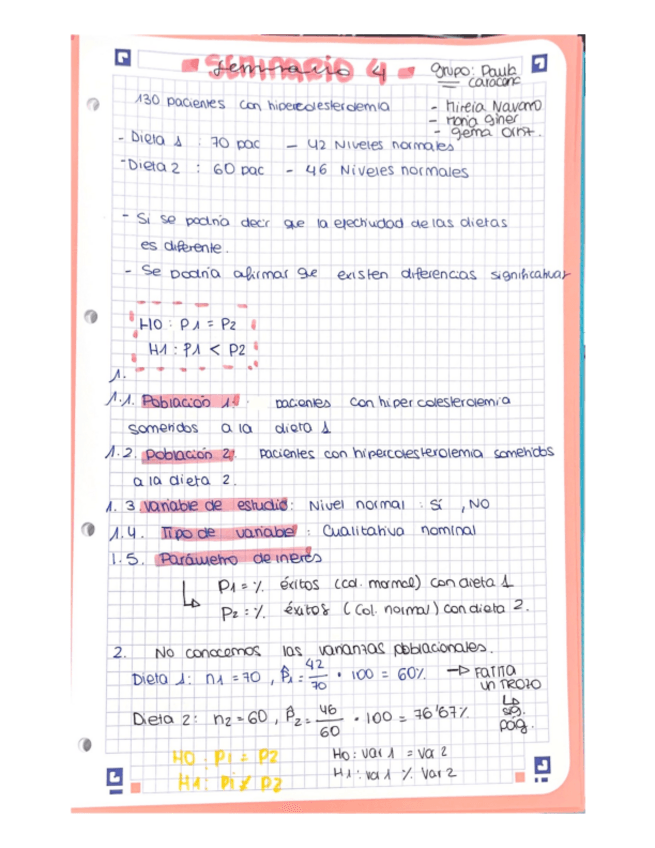 Seminario 4
grupo: Paula
caracena
- Mireia Navarro
- Mona giner
- gema
130 pacientes con hipercolesterolemia
- Dieta 1 : 70 pac - 42 Niveles normales
- Dieta 2 : 60 pac - 46 Niveles normales
- Si se podría decir que la efectividad de las dietas
es diferente.
- Se podría afirmar que existen diferencias significativas
H0 : P1 = P2
H1 : P1 < P2
1.
1.1. Población 1: pacientes con hipercolesterolemia
sometidos a la dieta 1
1.2. Población 2: pacientes con hipercolesterolemia sometidos
a la dieta 2.
1.3 variable de estudio: Nivel normal : Sí , NO
1.4. Tipo de variable : Cualitativa nominal
1.5. Parámetro de interés
P1 = % éxitos (col. normal) con dieta 1
P2 = % éxitos (col. normal) con dieta 2.
2. No conocemos las varianzas poblacionales.
Dieta 1: n1 = 70 , P̂1 = 42/70 · 100 = 60% → Falta
un trozo
↳ sig.
pág.
Dieta 2: n2 = 60 , P̂2 = 46/60 · 100 = 76'67%
H0 : P1 = P2
H1 : P1 ≠ P2
H0 : var 1 = var 2
H1 : var 1 % var 2